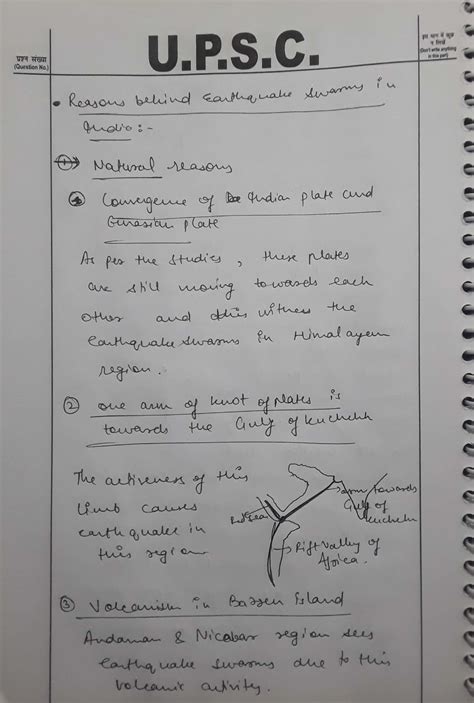 प्रश्न संख्या
(Question No.)
U.P.S.C.
इस भाग में कुछ
न लिखें
(Don't write anything
in this part)
• Reasons behind Earthquake Swarms in
India :-
① Natural reasons
① Convergence of Indian plate and
Eurasian plate
As per the studies, these plates
are still moving towards each
other and this witness the
earthquake swarms in Himalayen
region.
② one arm of knot of plates is
towards the Gulf of kuchchh
The activeness of this
limb causes
earthquake in
this region
Red Sea
arm towards
Gulf of
kuchchh
Rift valley of
Africa.
③ Volcanism in Barren Island
Andaman & Nicobar region sees
earthquake swarms due to this
volcanic activity.